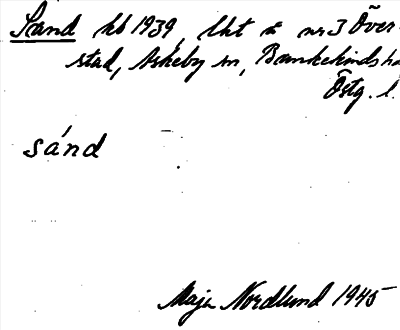 Sand kb 1939, lht å nr 3 Över-
stad, Askeby sn, Bankekinds h
Östg. l.
sánd
Maja Nordlund 1945